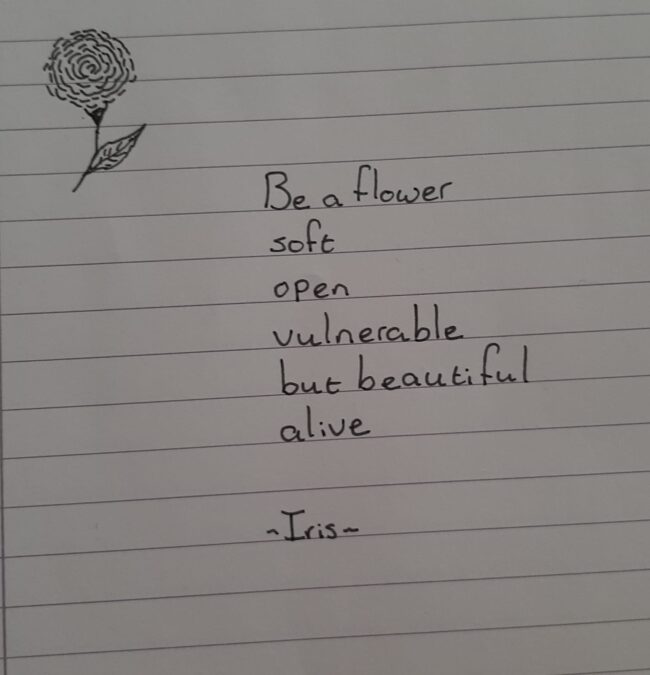 Be a flower
soft
open
vulnerable
but beautiful
alive
~Iris~